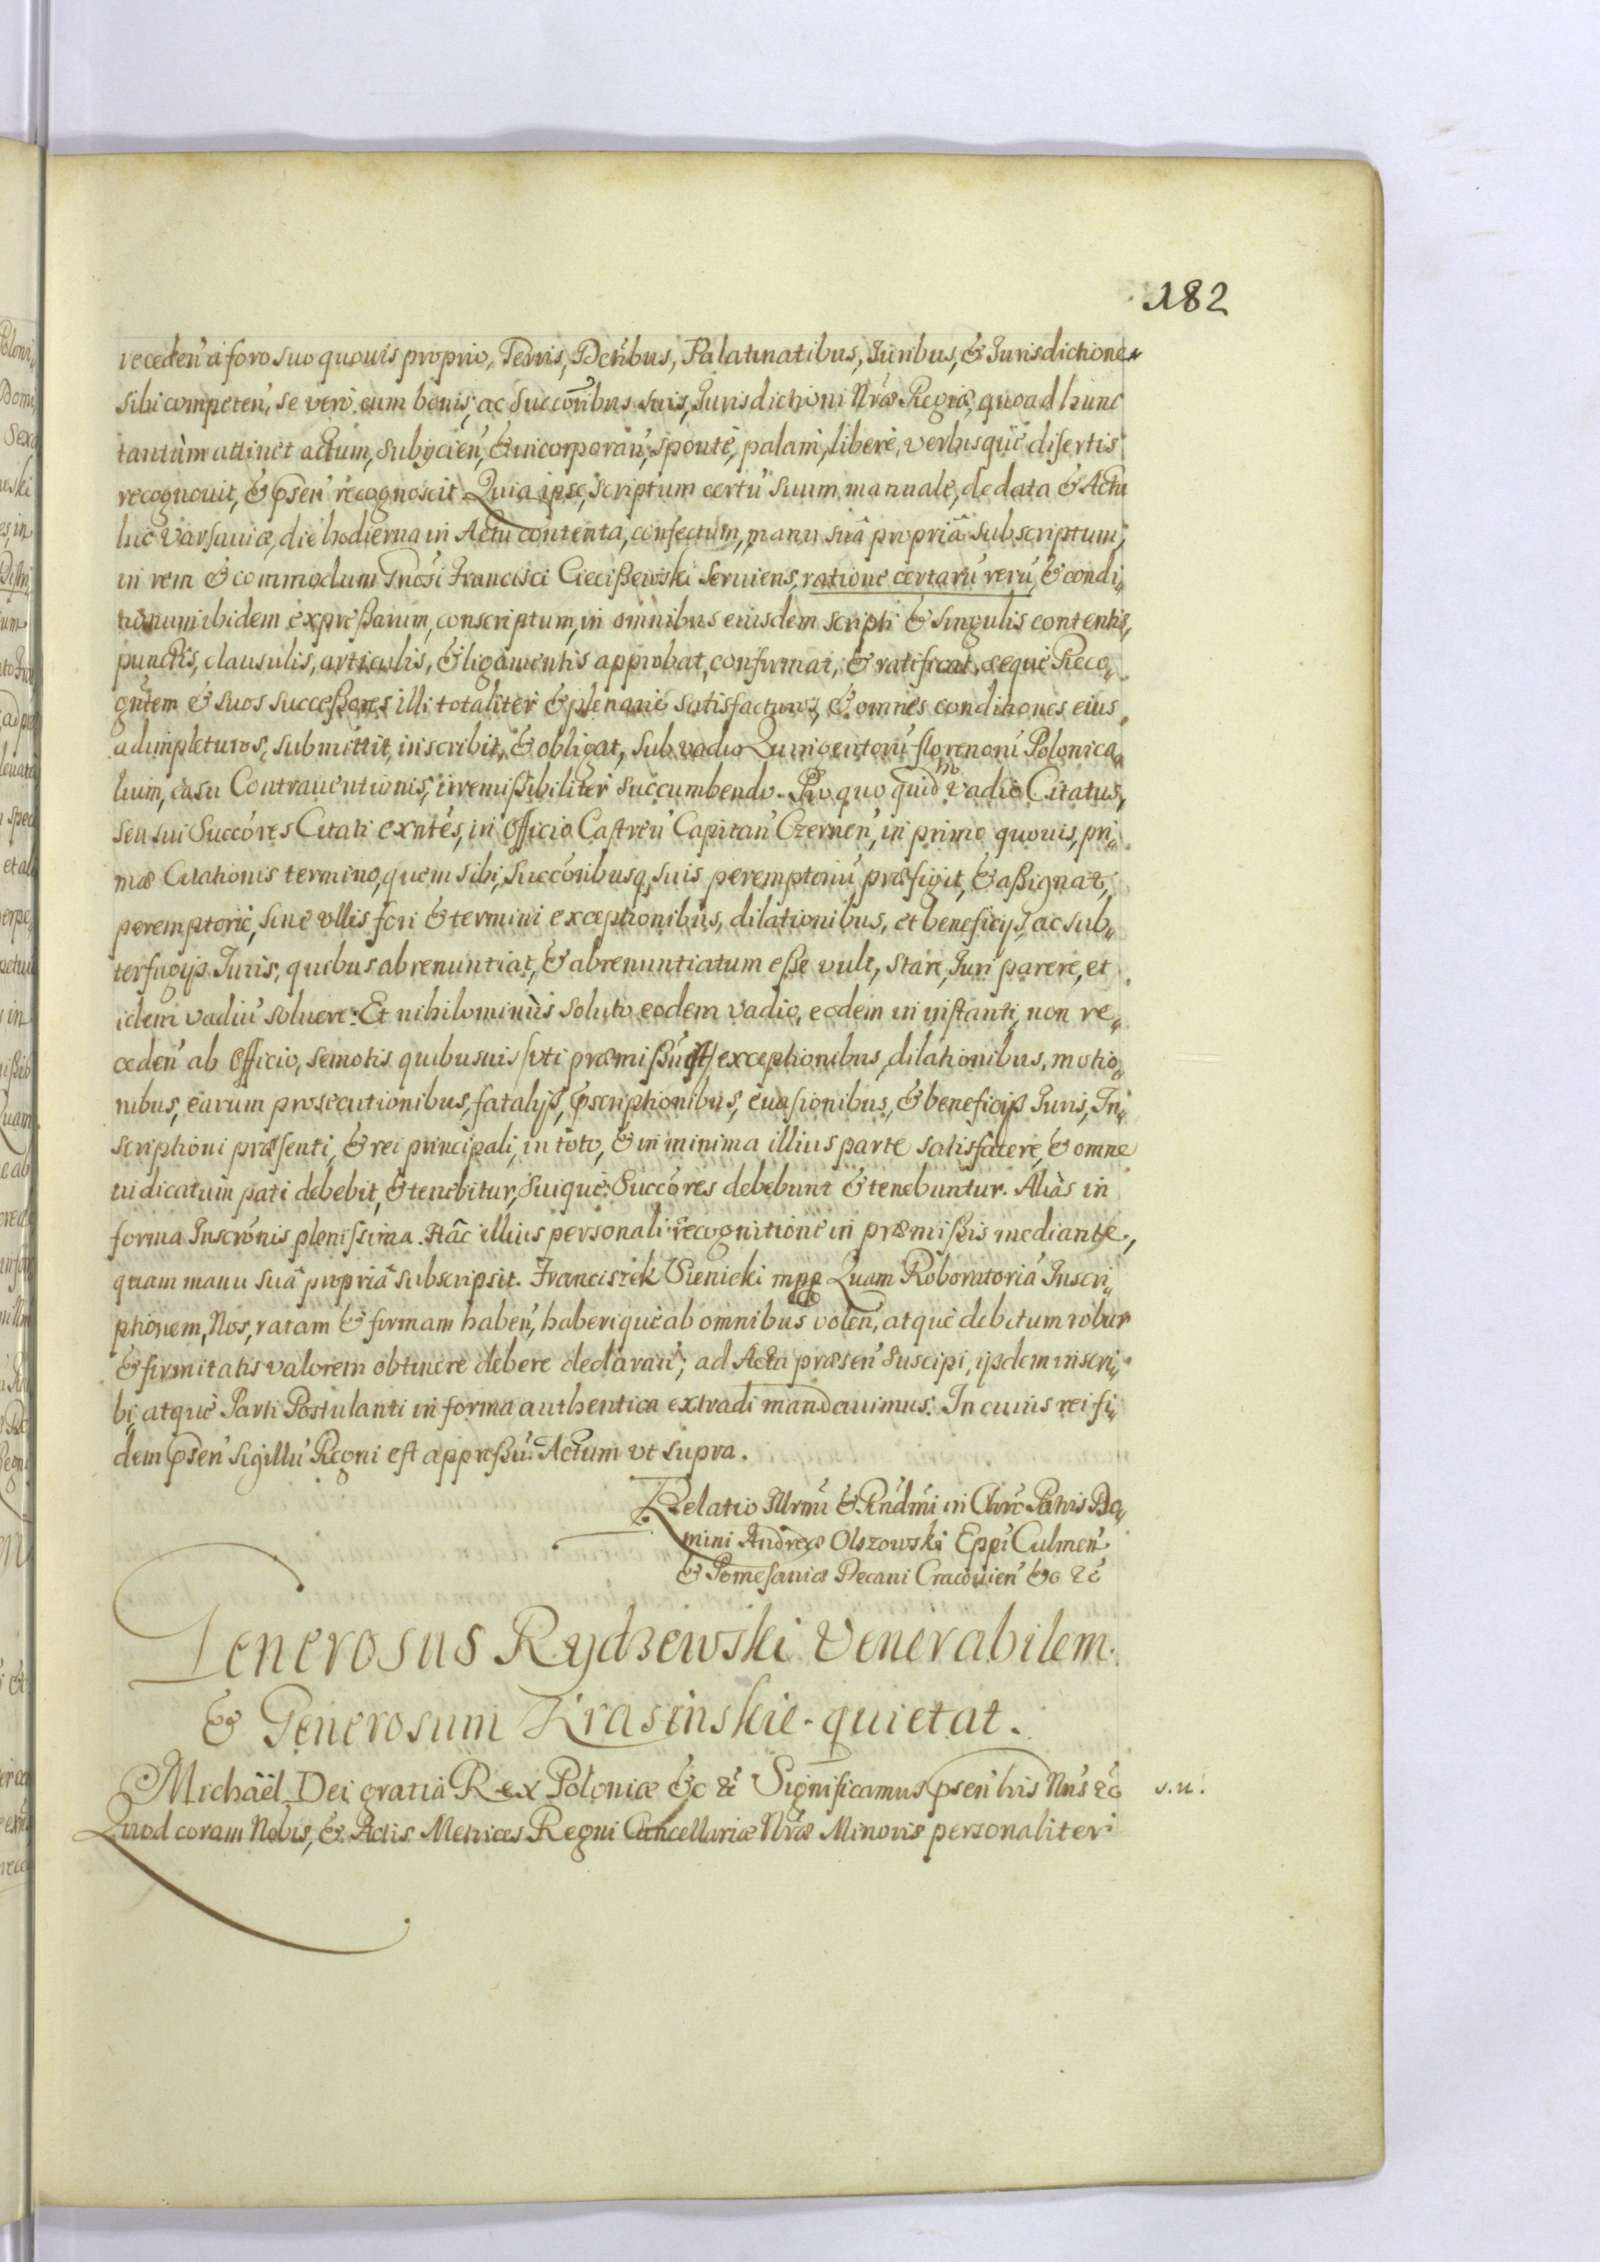 182
receden̄ a foro suo quouis proprio, Terris, Dctribus, Palatinatibus, Iuribus, & Iurisdictione
sibi competen̄, se vero cum bonis, ac Succoribus suis, Iurisdictioni Nræ Regiæ, quo ad hunc
tantùm attinet actum, subycien̄, & incorporan̄, sponte, palam, libere, verbisque disertis
recognouit, & psen̄ recognoscit. Quia ipse, scriptum certū suum, manuale, de data & Actu
huc Varsauiæ, die hodierna in Actu contenta, confectum, manu suâ propriâ subscriptum,
in rem & commodum Gnosi Francisci Cieciszewski seruiens, ratione certarū rerū, & condi„
tionum ibidem expressarum, conscriptum, in omnibus eiusdem scripti & singulis contentis,
punctis, clausulis, articulis, & ligamentis approbat, confirmat, & ratificat, seque Reco„
gntem & suos successores illi totaliter & plenarie satisfacturos, & omnes conditiones eius
adimpleturos, submittit, inscribit, & obligat, sub vadio Quingentorū florenorū Polonica„
lium, casu Contrauentionis, irremissibiliter succumbendo. Pro quo quidm vadio Citatus,
seu sui Succores Citati extntes, in Officio Castren̄ Capitan̄ Czernen̄, in primo quouis, pri„
mæ Citationis termino, quem sibi, Succoribusq, suis peremptoriū præfigit, & assignat,
peremptorie, sine vllis fori & termini exceptionibus, dilationibus, et beneficijs, ac sub„
terfugijs Iuris, quibus abrenuntiat, & abrenuntiatum esse vult, stare, Iuri parere, et
idem vadiū soluere. Et nihilominùs soluto eodem vadio, eodem in instanti, non re„
ceden̄ ab Officio, semotis quibusuis /vti præmissū est/ exceptionibus, dilationibus, motio„
nibus, earum prosecutionibus, fatalijs, pscriptionibus, euasionibus, & beneficijs Iuris, In„
scriptioni præsenti, & rei principali, in toto, & in minima illius parte satisfacere, & omne
iudicatum pati debebit, & tenebitur, Suique Succores debebunt & tenebuntur. Aliàs in
forma Inscronis plenissima. Hâc illius personali recognitione in præmissis mediante,
quam manu suâ propriâ subscripsit. Franciszek Sienicki mpp Quam Roboratoriā Inscri„
ptionem, Nos, ratam & firmam haben̄, haberique ab omnibus volen̄, atque debitum robur
& firmitatis valorem obtinere debere declaran̄; ad Acta præsen̄ suscipi, ijsdem inscri„
bi, atque Parti Postulanti in forma authentica extradi mandauimus. In cuius rei fi„
dem psen̄ Sigillū Regni est appressū. Actum vt supra.
Relatio Illrmi & Rndmi in Chro Patris Do„
mini Andreæ Olszowski Eppi Culmen̄
& Pomesaniæ Decani Cracouien̄ &c &c
Generosus Rydzewski Venerabilem
& Generosum Krasinskie quietat.
Michaël Dei gratia Rex Poloniæ &c &c Significamus psen̄ his Nris &c s.n.
Quod coram Nobis, & Actis Metrices Regni Cancellariæ Nræ Minoris personaliter